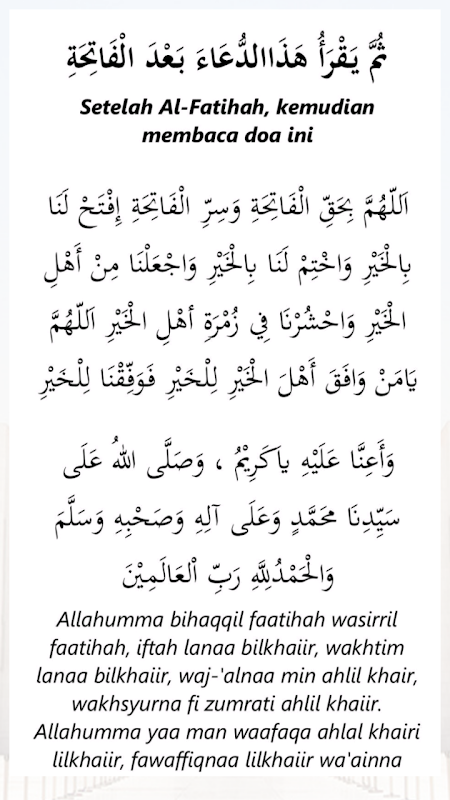 ثُمَّ يَقْرَأُ هَذَاالدُّعَاءَ بَعْدَ الْفَاتِحَةِ
Setelah Al-Fatihah, kemudian
membaca doa ini
اَللّٰهُمَّ بِحَقِّ الْفَاتِحَةِ وَسِرِّ الْفَاتِحَةِ إِفْتَحْ لَنَا
بِالْخَيْرِ وَاخْتِمْ لَنَا بِالْخَيْرِ وَاجْعَلْنَا مِنْ أَهْلِ
الْخَيْرِ وَاحْشُرْنَا فِي زُمْرَةِ أَهْلِ الْخَيْرِ اَللّٰهُمَّ
يَامَنْ وَافَقَ أَهْلَ الْخَيْرِ لِلْخَيْرِ فَوَفِّقْنَا لِلْخَيْرِ
وَأَعِنَّا عَلَيْهِ يَاكَرِيْمُ ، وَصَلَّى اللهُ عَلَى
سَيِّدِنَا مُحَمَّدٍ وَعَلَى آلِهِ وَصَحْبِهِ وَسَلَّمَ
وَالْحَمْدُلِلَّهِ رَبِّ اْلعَالَمِيْنَ
Allahumma bihaqqil faatihah wasirril
faatihah, iftah lanaa bilkhaiir, wakhtim
lanaa bilkhaiir, waj-'alnaa min ahlil khair,
wakhsyurna fi zumrati ahlil khaiir.
Allahumma yaa man waafaqa ahlal khairi
lilkhaiir, fawaffiqnaa lilkhaiir wa'ainna